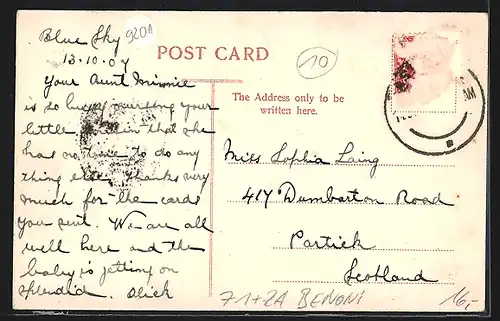 Blue Sky
9201
13.10.07
POST CARD
10
Your Aunt Minnie
is so busy nursing your
little that she
has no time to do any
thing else. Thanks very
much for the cards
you sent. We are all
well here and the
baby is getting on
splendid. Alick
The Address only to be
written here.
AM
Miss Sophia Laing
417 Dumbarton Road
Partick
Scotland
71+2A BENONI
16,-